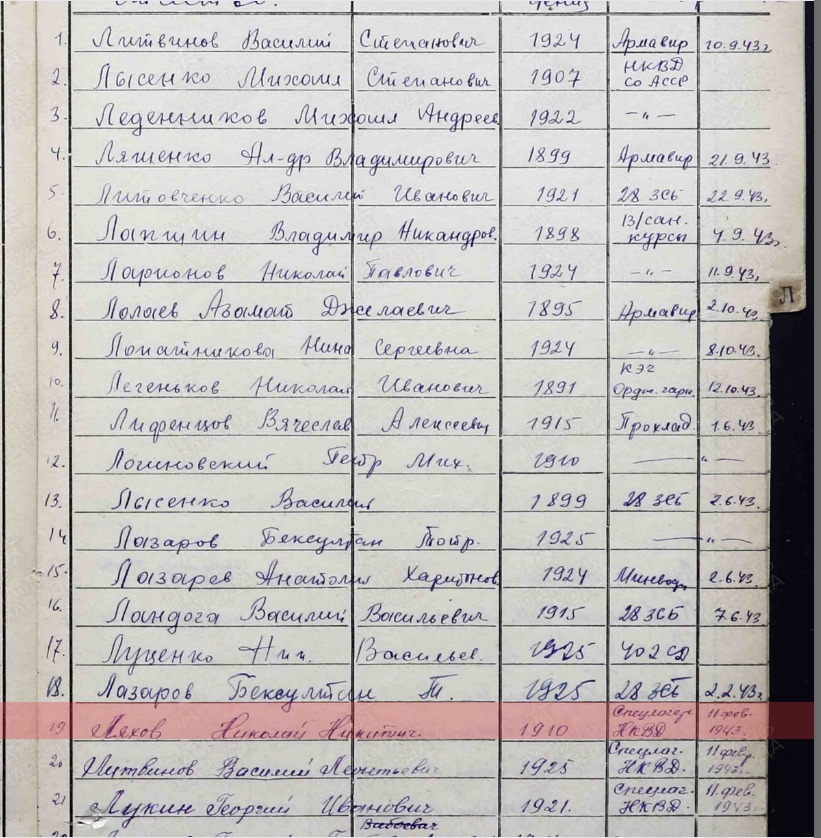 1. Литвинов Василий Степанович 1924 Армавир 10.9.43г
2. Лысенко Михаил Степанович 1907 НКВД СО АССР
3. Леденников Михаил Андреев 1922 -"-
4. Ляшенко Ал-др Владимирович 1899 Армавир 21.9.43.
5. Литовченко Василий Иванович 1921 28 ЗСБ 22.9.43.
6. Лапшин Владимир Никандров. 1898 В/сан. курсы 4.9.43г.
7. Ларионов Николай Павлович 1924 -"- 11.9.43.
8. Лолаев Азамат Джелаевич 1895 Армавир 2.10.43.
9. Лопатникова Нина Сергеевна 1924 -"- 8.10.43.
10. Легеньков Николай Иванович 1891 КЭЧ Ордж. гарн. 12.10.43.
11. Лифренцов Вячеслав Алексеевич 1915 Прохлад. 1.6.43.
12. Логиновский Петр Мих. 1910 -"-
13. Лысенко Василий 1899 28 ЗСБ 2.6.43.
14 Лазаров Бексултан Татр. 1925 -"-
15. Лазарев Анатолий Харитонов 1924 Минвод 2.6.43.
16. Ландога Василий Васильевич 1915 28 ЗСБ 7.6.43
17. Луценко Ник. Васильев. 1925 402 СД
18. Лазаров Бексултан Т. 1925 28 ЗСБ 2.2.43г
19 Ляхов Николай Никитич. 1910 Спецлагерь НКВД 11 фев. 1943.
20 Литвинов Василий Леонтьевич 1925 Спецлаг. НКВД. 11 фев. 1943.
21 Лукин Георгий Иванович 1921. Спецлаг. НКВД. 11. фев. 1943
Л